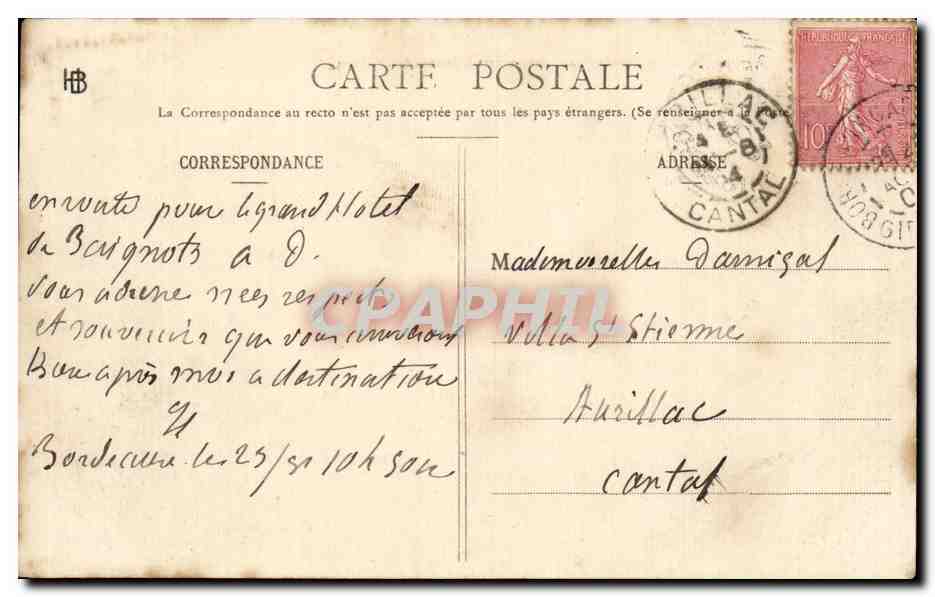 HB
CARTE POSTALE
La Correspondance au recto n'est pas acceptée par tous les pays étrangers. (Se renseigner à la Poste
CORRESPONDANCE
ADRESSE
REPUBLIQUE FRANÇAISE
10
AURILLAC
CANTAL
BOR
GIR
en route pour le grand Hotel
de Baignots a D.
vous adresse mes respects
et souvenirs que vous
a destination
Bordeaux le 10h
Mademoiselles Damigal
Villa St Etienne
Aurillac
Cantal
CPAPHIL